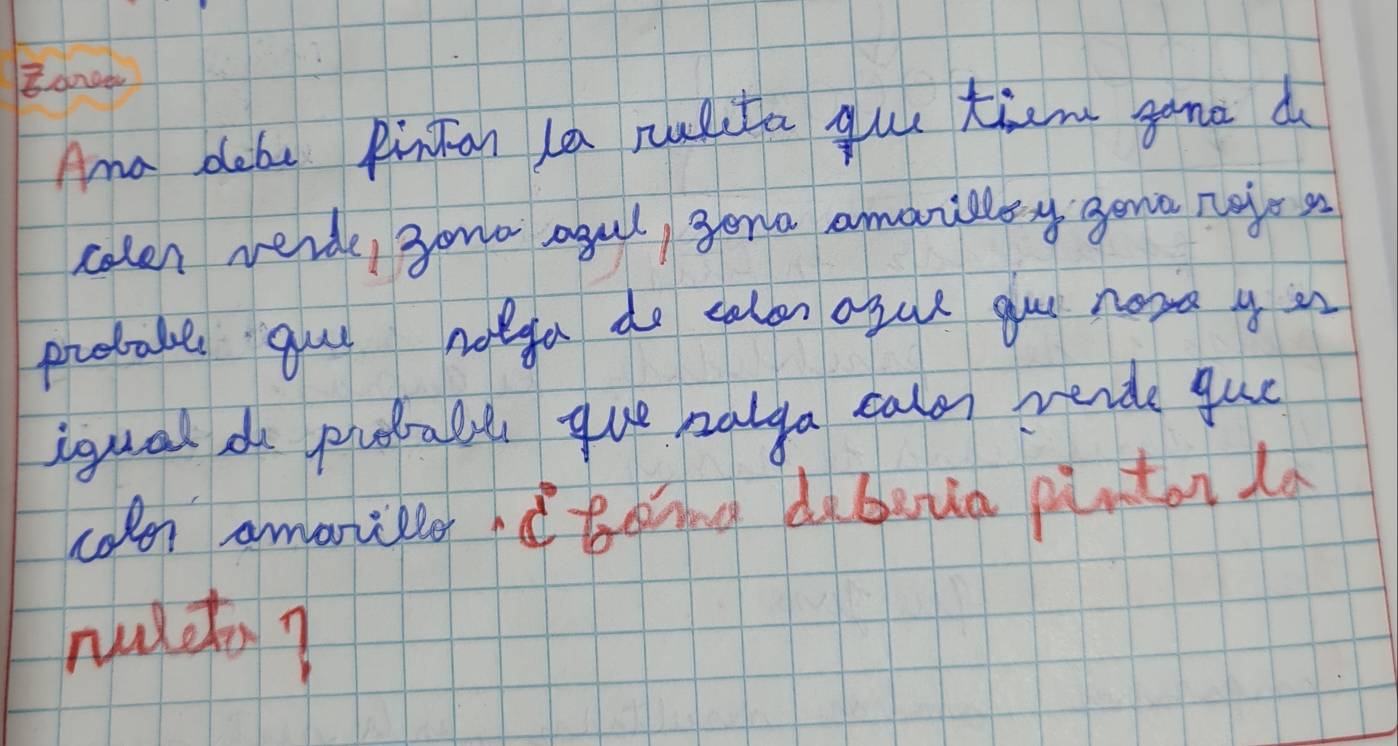 Tarea
Ana debe pintar la ruleta que tiene zona de
color verde, zona azul, zona amarillo y zona rojo es
probable que salga de color azul que rosa y es
igual de probable que salga color verde que
color amarillo. ¿Cómo deberia pintar la
ruleta?